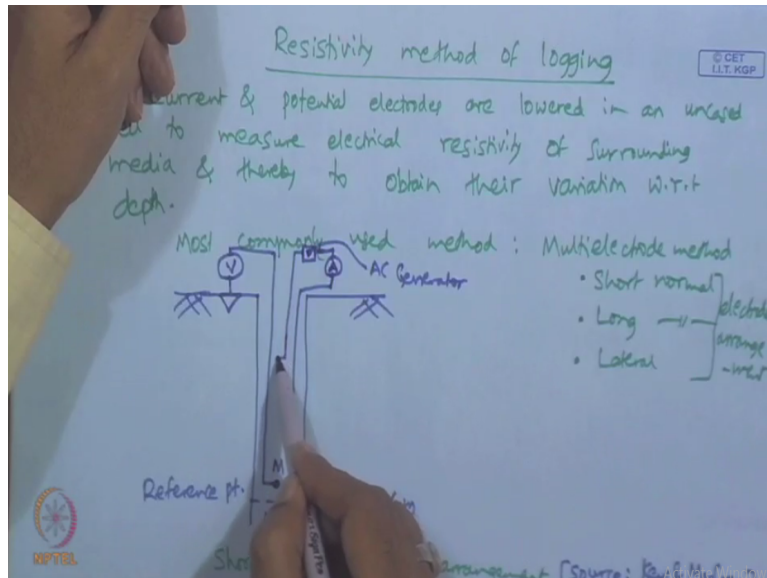 Resistivity method of logging
© CET
I.I.T. KGP
current & potential electrodes are lowered in an uncased
to measure electrical resistivity of surrounding
media & thereby to obtain their variation w.r.t
depth.
Most commonly used method : Multielectrode method
• Short normal
• Long —〃—
• Lateral
electrode
arrange
-ment
V
A
AC Generator
M
Reference pt.
arrangement [source:
NPTEL
Activate Windows